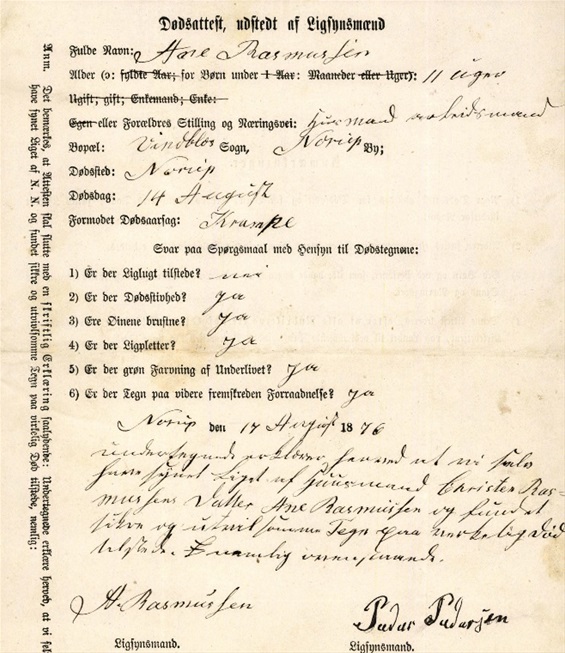 Dødsattest, udstedt af Ligsynsmænd
Fulde Navn: Ane Rasmussen
Alder (ɔ: fyldte Aar; for Børn under 1 Aar: Maaneder eller Uger): 11 Uger
Ugift; gift; Enkemand; Enke:
Egen eller Forældres Stilling og Næringsvei: Husmand arbeidsmand
Bopæl: Vindblæs Sogn, Norup By;
Dødssted: Norup
Dødsdag: 14 August
Formodet Dødsaarsag: Krampe
Svar paa Spørgsmaal med Hensyn til Dødstegnene:
1) Er der Liglugt tilstede? nei
2) Er der Dødsstivhed? ja
3) Ere Øinene brustne? ja
4) Er der Ligpletter? ja
5) Er der grøn Farvning af Underlivet? ja
6) Er der Tegn paa videre fremskreden Forraadnelse? ja
Norup den 17 August 1876
undertegnede erklærer herved at vi selv
have synet Liget af Huusmand Christen Ras-
mussens Datter Ane Rasmussen og fundet
sikre og utvilsomme Tegn paa verkelig Død
tilstede nemlig ovenstaaende.
A. Rasmussen
Peder Pedersen
Ligsynsmand.
Ligsynsmand.
Anm. Det bemærkes, at Attesten skal slutte med en skriftlig Erklæring saalydende: Undertegnede erklære herved, at vi sel
have synet Liget af N. N. og fundet sikre og utvivlsomme Tegn paa virkelig Død tilstede, nemlig: